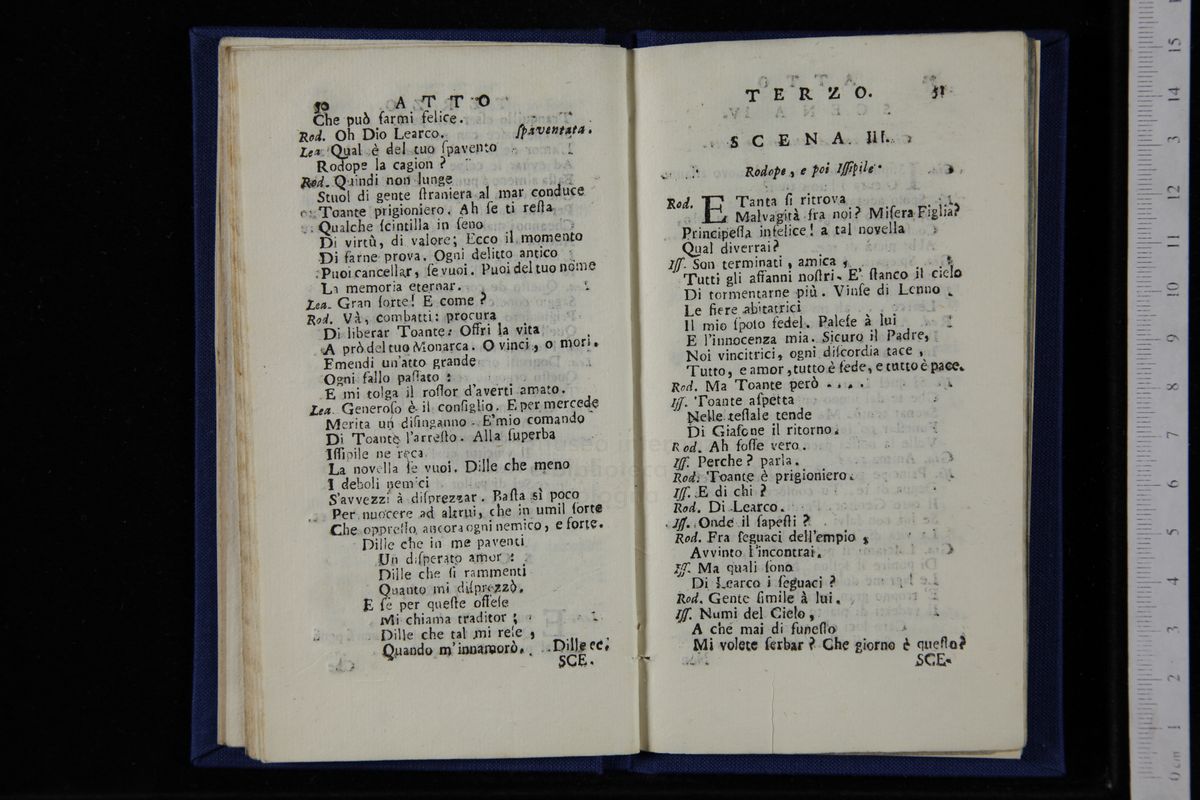 50 ATTO
Che può farmi felice.
Rod. Oh Dio Learco. ſpaventata.
Lea. Qual è del tuo ſpavento
Rodope la cagion?
Rod. Quindi non lunge
Stuol di gente ſtraniera al mar conduce
Toante prigioniero. Ah ſe ti reſta
Qualche ſcintilla in ſeno
Di virtù, di valore; Ecco il momento
Di farne prova. Ogni delitto antico
Puoi cancellar, ſe vuoi. Puoi del tuo nome
La memoria eternar.
Lea. Gran ſorte! E come?
Rod. Và, combatti: procura
Di liberar Toante: Offri la vita
A prò del tuo Monarca. O vinci, o mori.
Emendi un'atto grande
Ogni fallo paſſato:
E mi tolga il roſſor d'averti amato.
Lea. Generoſo è il conſiglio. E per mercede
Merita un diſinganno. E' mio comando
Di Toante l'arreſto. Alla ſuperba
Iſſipile ne reca
La novella ſe vuoi. Dille che meno
I deboli nemici
S'avvezzi à diſprezzar. Baſta sì poco
Per nuocere ad altrui, che in umil ſorte
Che oppreſſo ancora ogni nemico, e forte.
Dille che in me paventi
Un diſperato amor:
Dille che ſi rammenti
Quanto mi diſprezzò.
E ſe per queſte offeſe
Mi chiama traditor;
Dille che tal mi reſe,
Quando m'innamorò. Dille ec.
SCE.
TERZO. 51
SCENA III.
Rodope, e poi Iſſipile.
Rod. E Tanta ſi ritrova
Malvagità fra noi? Miſera Figlia?
Principeſſa infelice! a tal novella
Qual diverrai?
Iſſ. Son terminati, amica,
Tutti gli affanni noſtri. E' ſtanco il cielo
Di tormentarne più. Vinſe di Lenno
Le fiere abitatrici
Il mio ſpoſo fedel. Paleſe à lui
E l'innocenza mia. Sicuro il Padre,
Noi vincitrici, ogni diſcordia tace,
Tutto, e amor, tutto è fede, e tutto è pace.
Rod. Ma Toante però ....
Iſſ. Toante aſpetta
Nelle teſſale tende
Di Giaſone il ritorno.
Rod. Ah foſſe vero.
Iſſ. Perche? parla.
Rod. Toante è prigioniero.
Iſſ. E di chi?
Rod. Di Learco.
Iſſ. Onde il ſapeſti?
Rod. Fra ſeguaci dell'empio,
Avvinto l'incontrai.
Iſſ. Ma quali ſono
Di Learco i ſeguaci?
Rod. Gente ſimile à lui.
Iſſ. Numi del Cielo,
A che mai di funeſto
Mi volete ſerbar? Che giorno è queſto?
SCE.